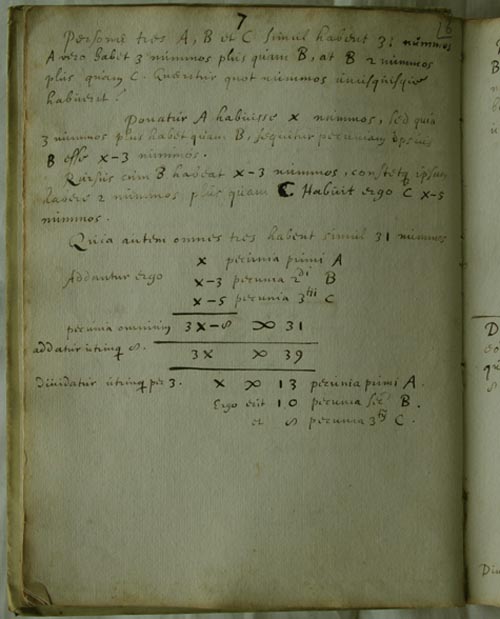 7
16
Personæ tres A, B et C simul habent 31 nummos
A vero habet 3 nummos plus quam B, at B 2 nummos
plus quam C. Quæritur quot nummos unusquisque
habuerit?
Ponatur A habuisse x nummos, sed quia
3 nummos plus habet quam B, sequitur pecuniam ipsius
B esse x-3 nummos.
Rursus cum B habeat x-3 nummos, constetq ipsum
habere 2 nummos plus quam C Habuit ergo C x-5
nummos.
Quia autem omnes tres habent simul 31 nummos
x pecunia primi A
Addantur ergo x-3 pecunia 2di B
x-5 pecunia 3tii C
pecunia omnium 3x-8 ∞ 31
addatur utrinq 8. 3x ∞ 39
dividatur utrinq per 3. x ∞ 13 pecunia primi A.
Ergo erit 10 pecunia sec B.
et 8 pecunia 3tii C.